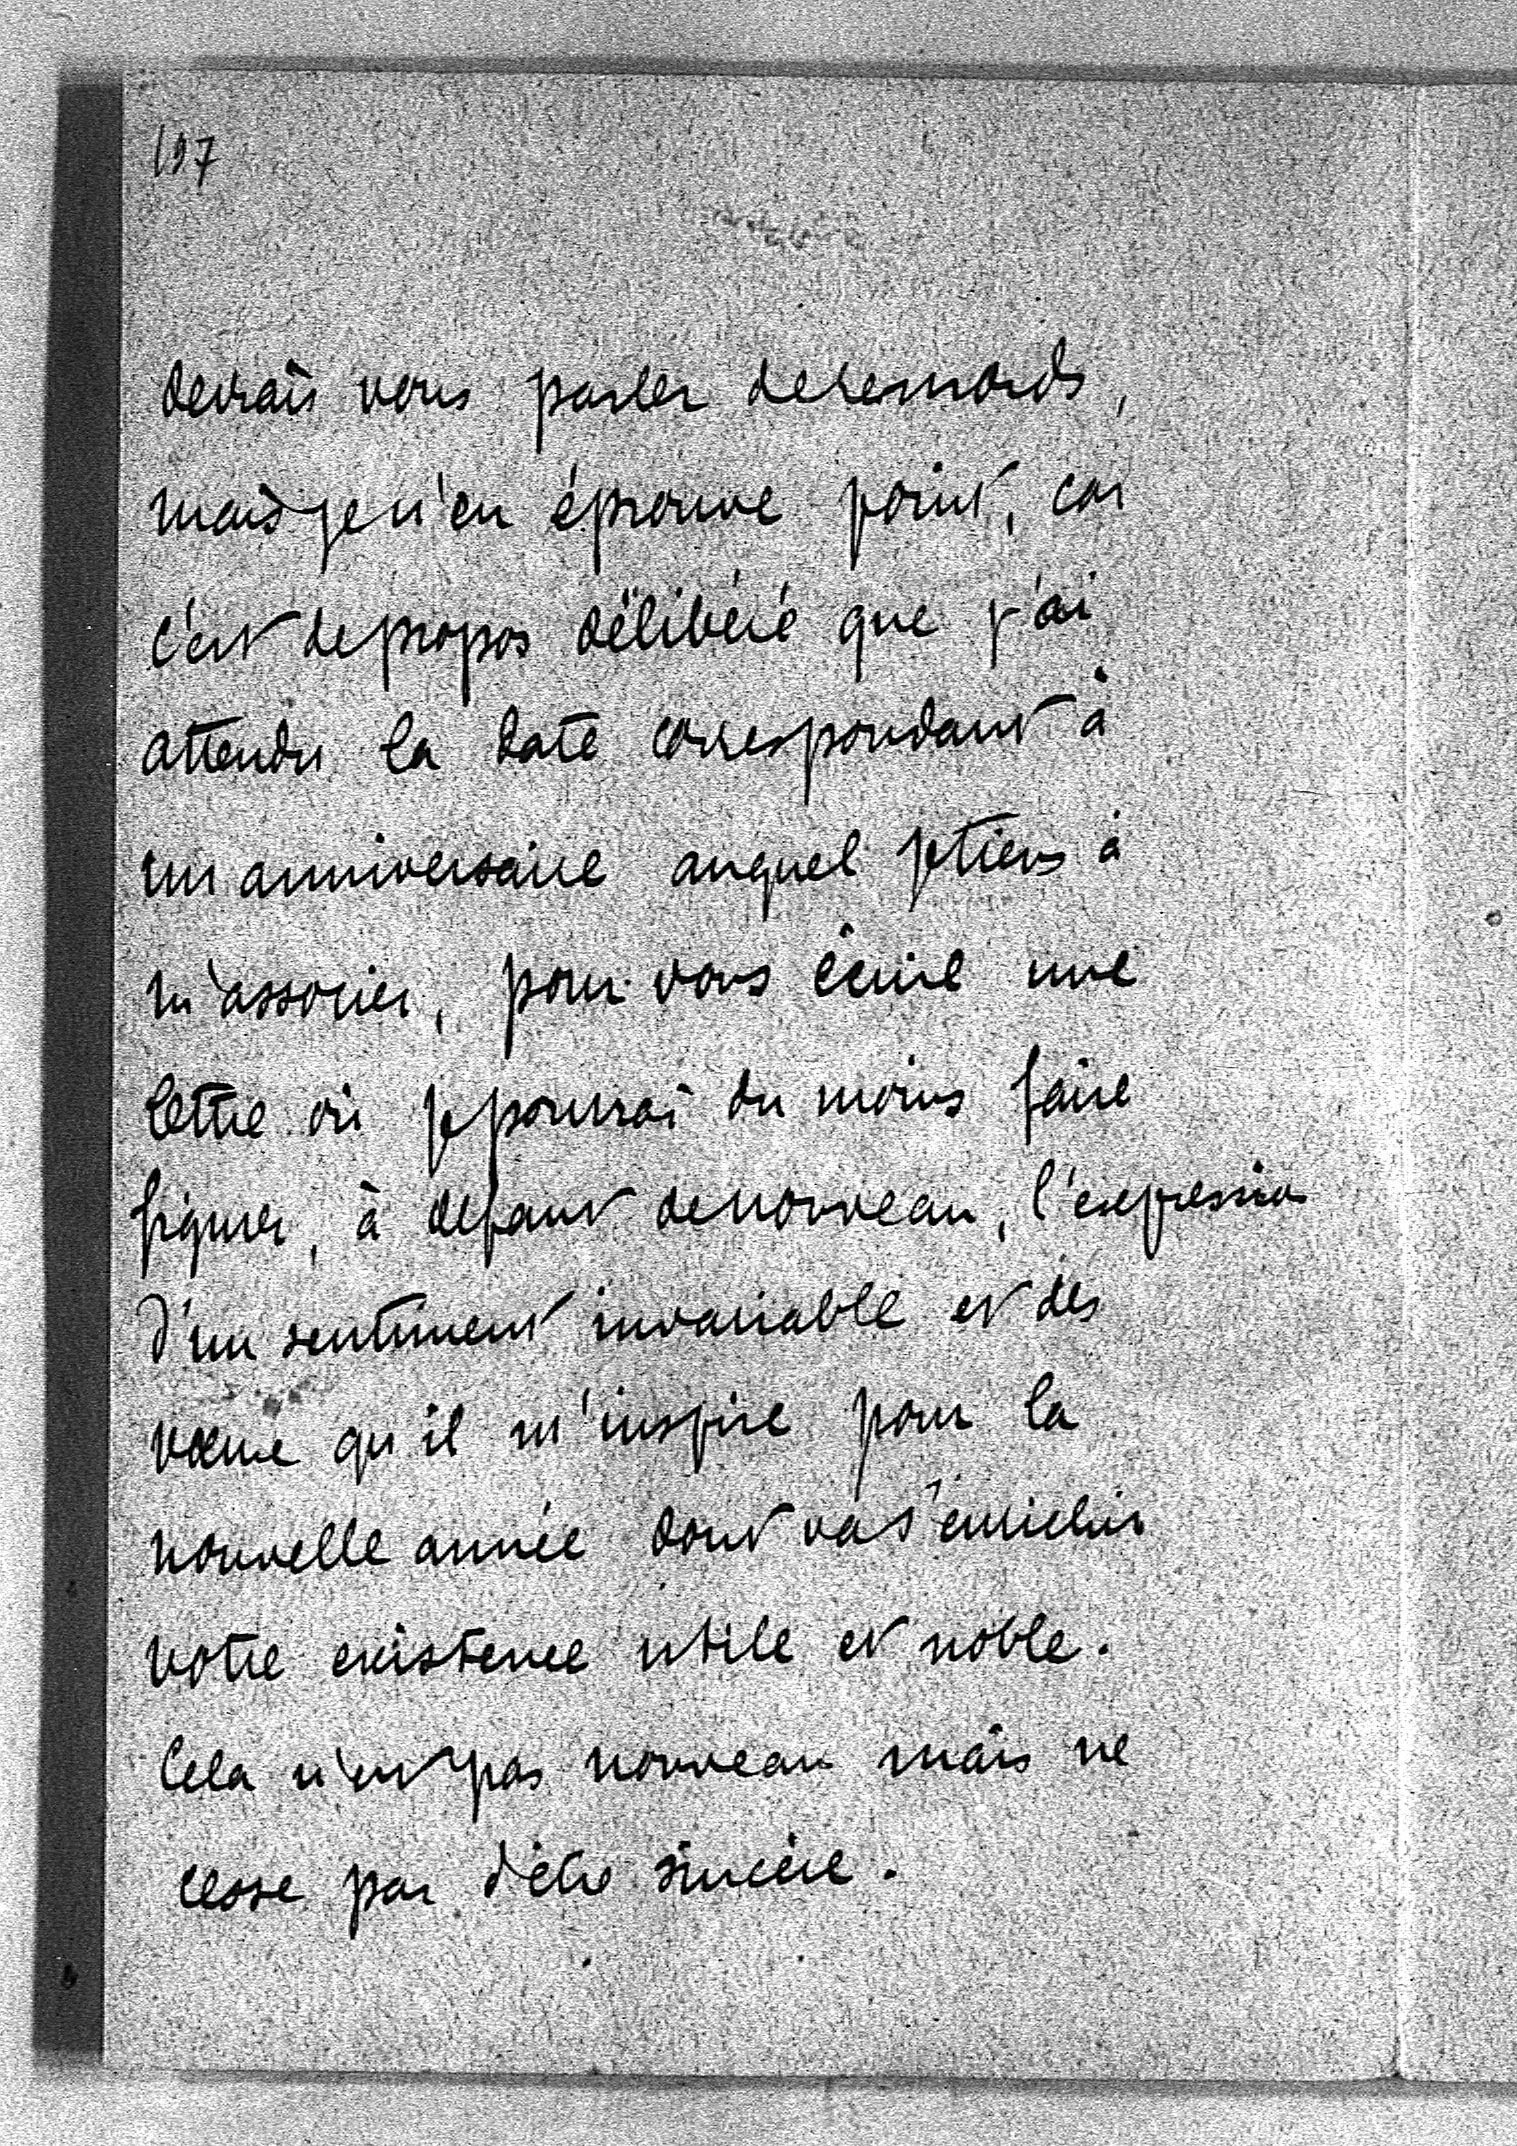 197
devrais vous parler de remords,
mais je n'en éprouve point, car
c'est de propos délibéré que j'ai
attendu la date correspondant à
un anniversaire auquel je tiens à
m'associer, pour vous écrire une
lettre où je pourrai du moins faire
figurer, à défaut de nouveau, l'expression
d'un sentiment invariable et des
vœux qu'il m'inspire pour la
nouvelle année dont va s'enrichir
votre existence utile et noble.
Cela n'est pas nouveau mais ne
cesse pas d'être sincère.